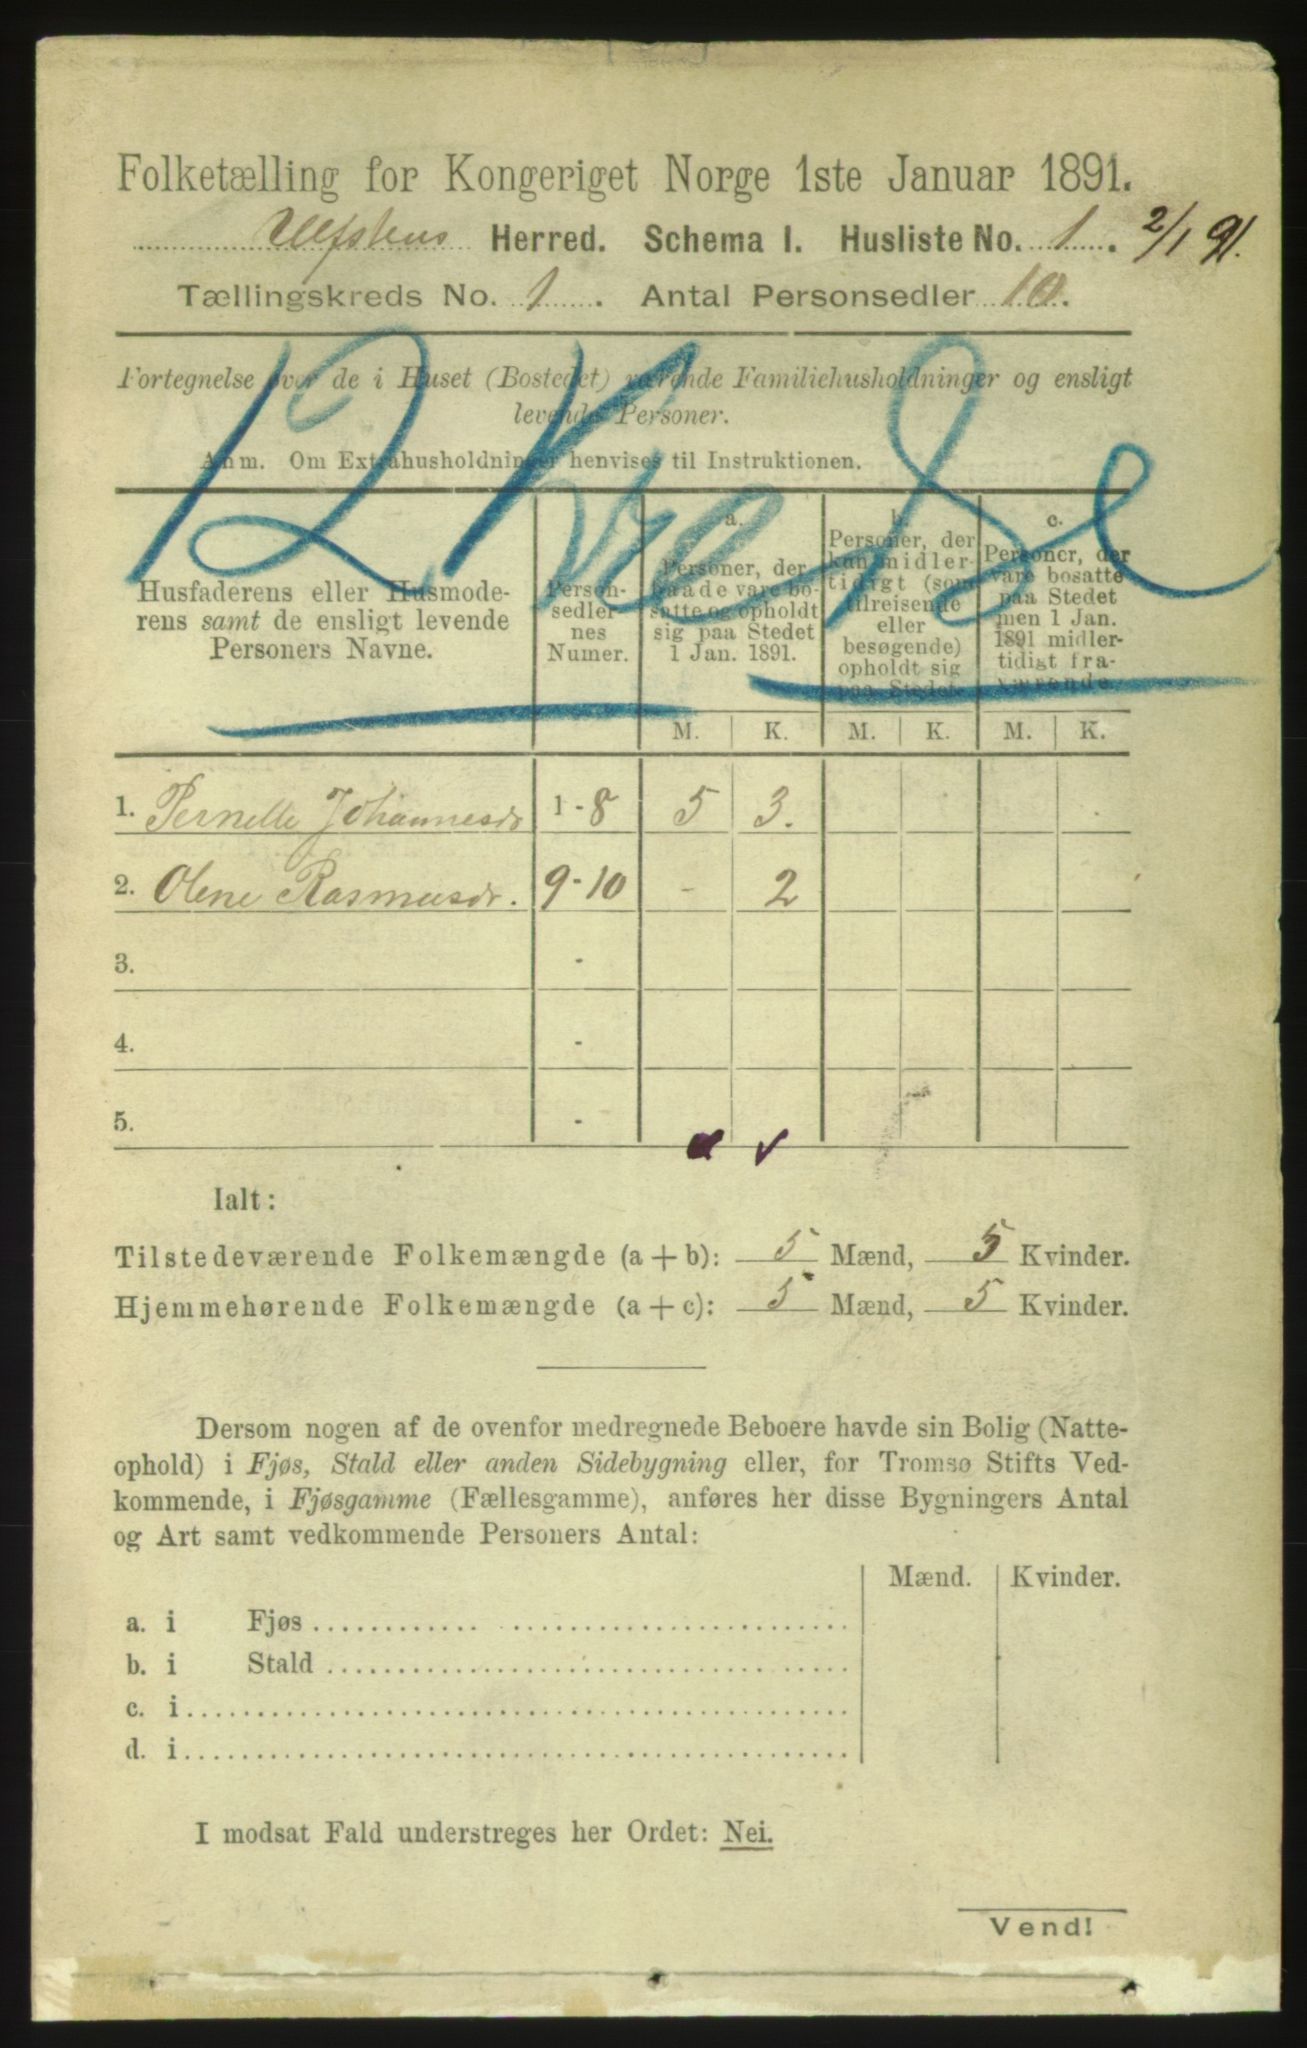 Folketælling for Kongeriget Norge 1ste Januar 1891.
Ulfstens Herred. Schema I. Husliste No. 1. 2/1 91.
Tællingskreds No. 1. Antal Personsedler 10.
Fortegnelse over de i Huset (Bostedet) værende Familiehusholdninger og ensligt
levende Personer.
Anm. Om Extrahusholdninger henvises til Instruktionen.
Husfaderens eller Husmode-
rens samt de ensligt levende
Personers Navne.
Person-
sedler-
nes
Numer.
a.
Personer, der
baade vare bo-
satte og opholdt
sig paa Stedet
1 Jan. 1891.
b.
Personer, der
kun midler-
tidigt (som
tilreisende
eller
besøgende)
opholdt sig
paa Stedet.
c.
Personer, der
vare bosatte
paa Stedet
men 1 Jan.
1891 midler-
tidigt fra-
værende.
M. K. M. K. M. K.
1. Pernelle Johannesdr 1-8 5 3.
2. Olene Rasmusdr. 9-10 - 2
3. -
4. -
5. -
Ialt:
Tilstedeværende Folkemængde (a + b): 5 Mænd, 5 Kvinder.
Hjemmehørende Folkemængde (a + c): 5 Mænd, 5 Kvinder.
Dersom nogen af de ovenfor medregnede Beboere havde sin Bolig (Natte-
ophold) i Fjøs, Stald eller anden Sidebygning eller, for Tromsø Stifts Ved-
kommende, i Fjøsgamme (Fællesgamme), anføres her disse Bygningers Antal
og Art samt vedkommende Personers Antal:
Mænd. Kvinder.
a. i Fjøs
b. i Stald
c. i
d. i
I modsat Fald understreges her Ordet: Nei.
Vend!